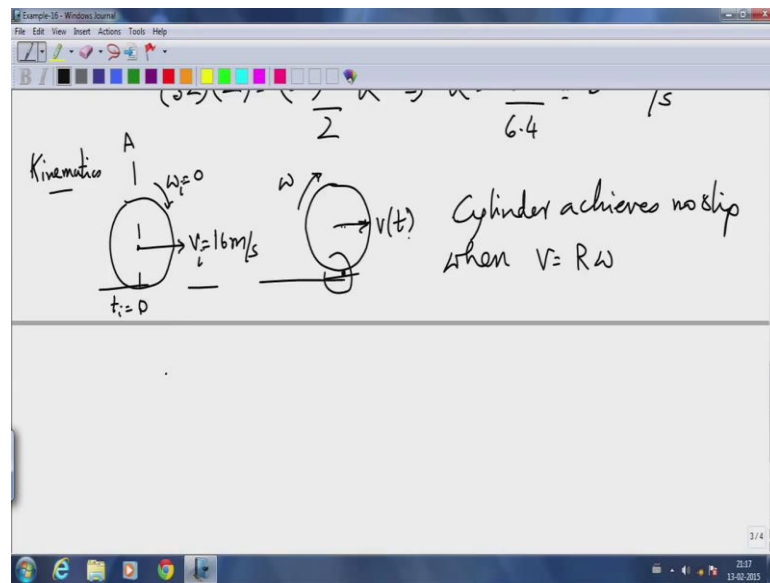 Example-16 - Windows Journal
File Edit View Insert Actions Tools Help
2
6.4
/s
Kinematics
A
ωᵢ=0
vᵢ=16m/s
tᵢ=0
ω
v(t)
Cylinder achieves no slip
when v=Rω
3/4
21:17
13-02-2015